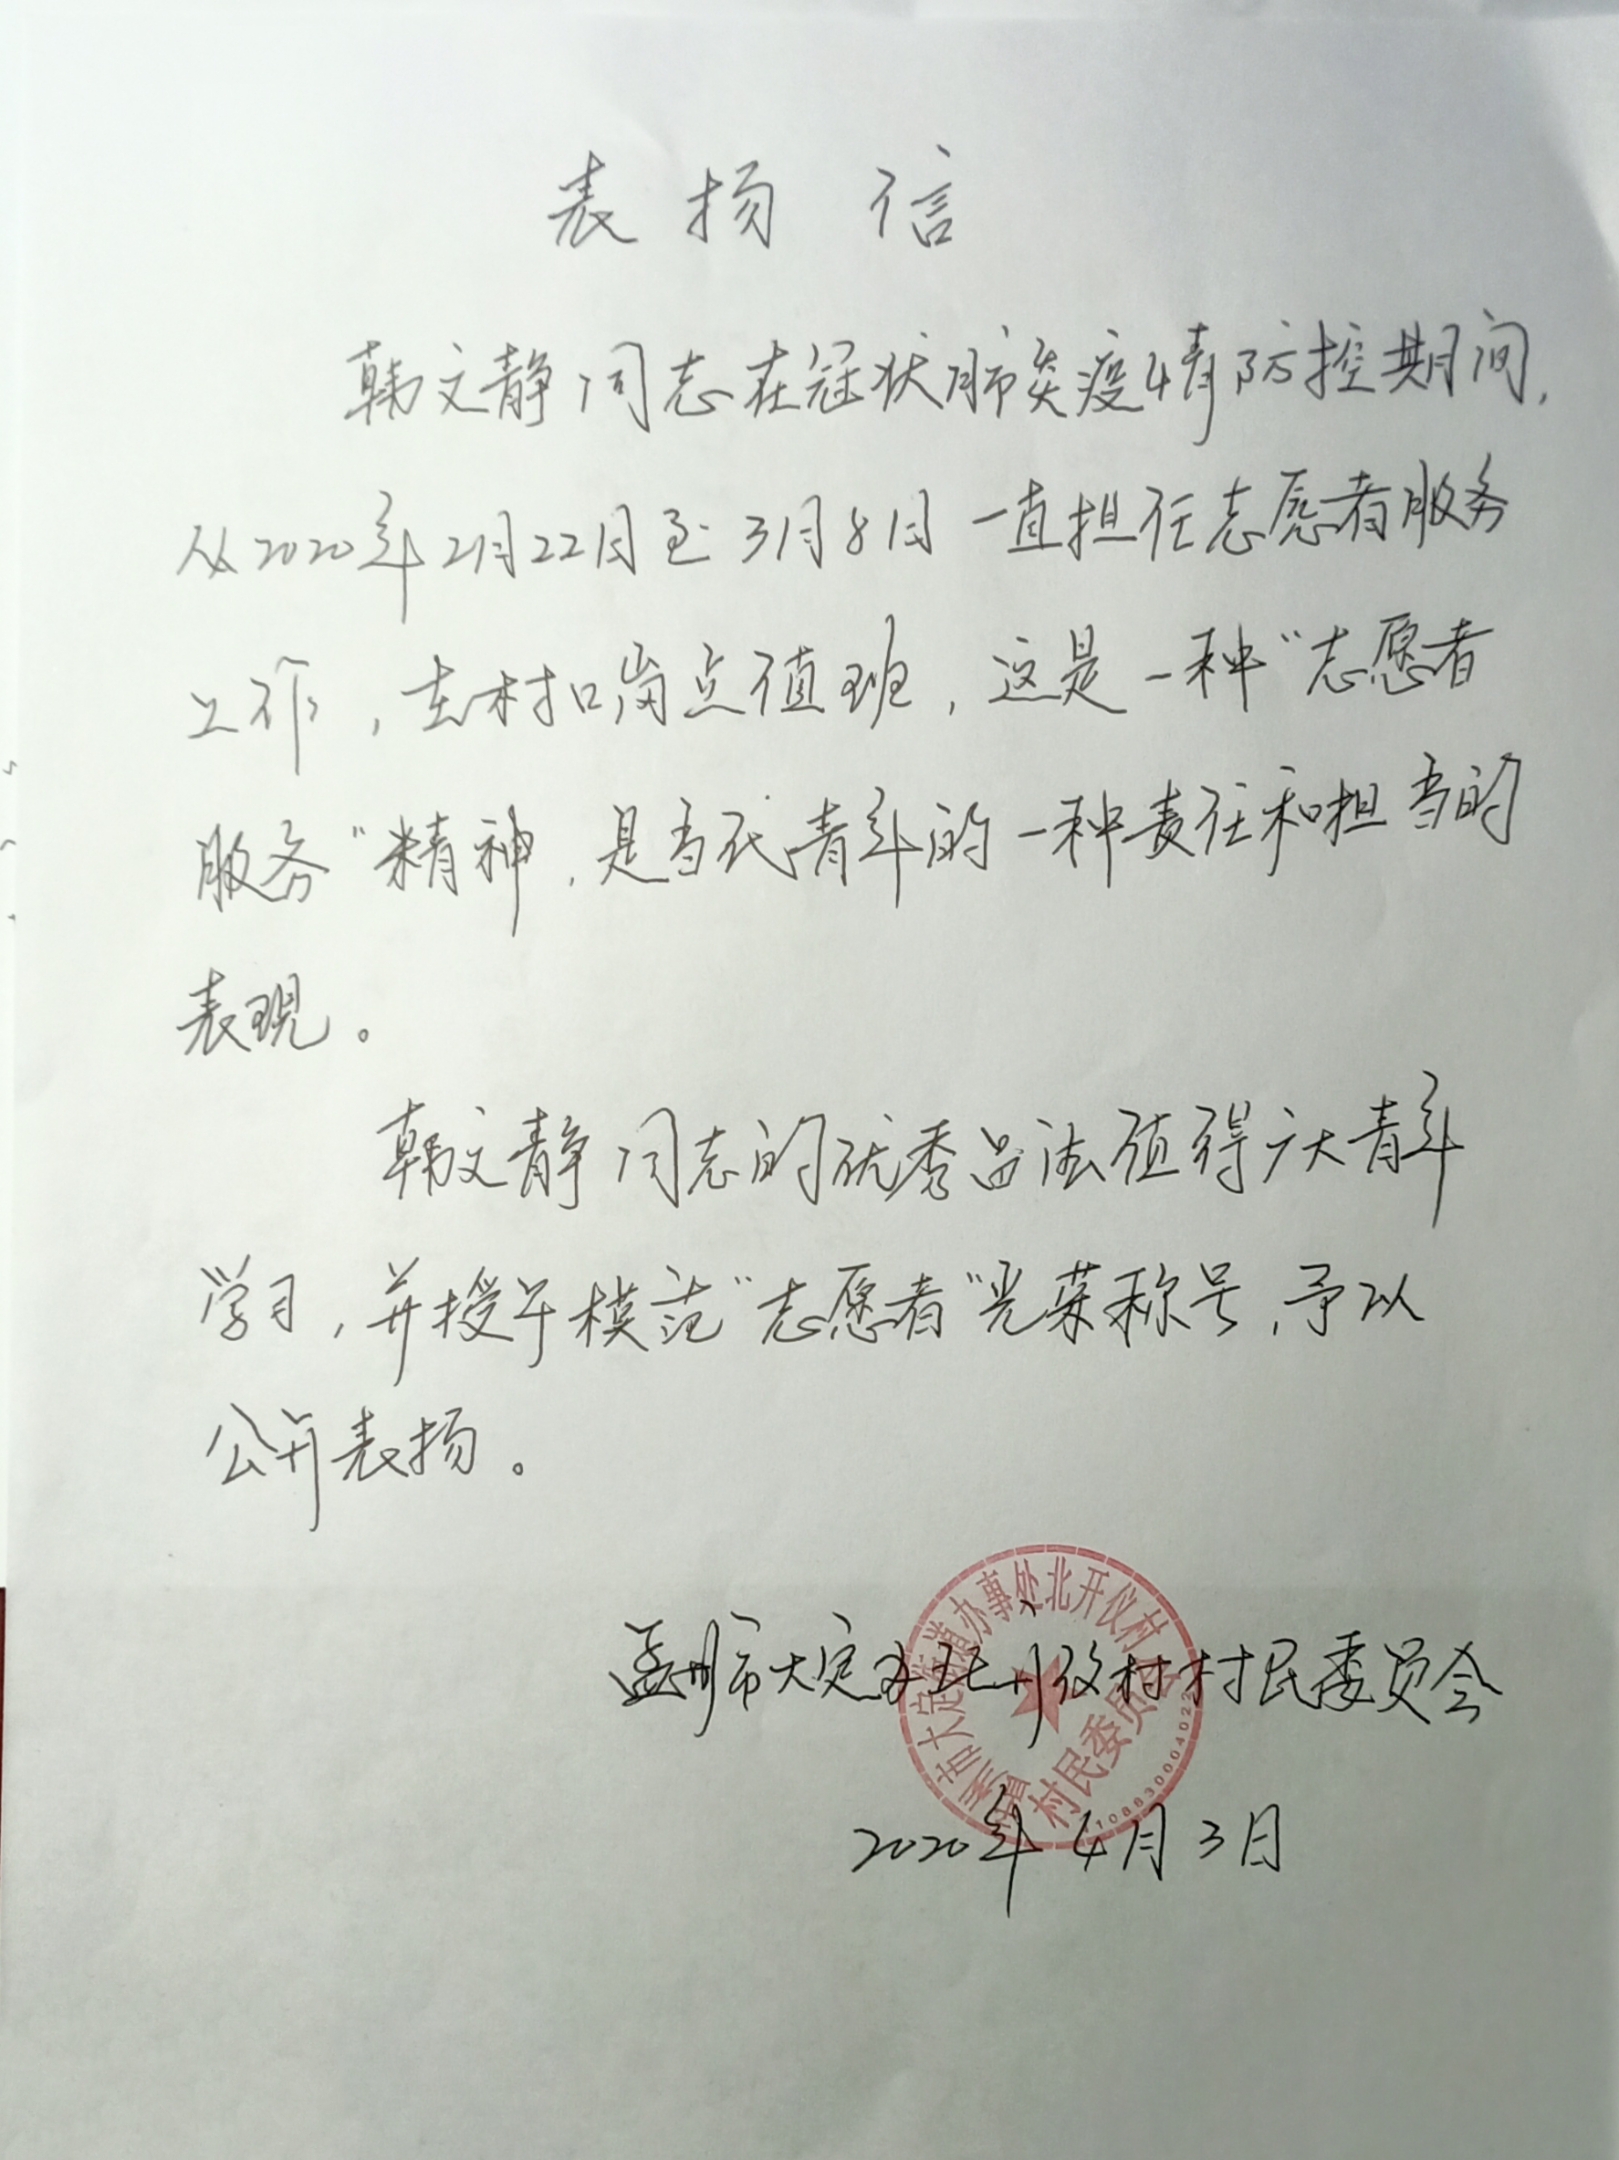 表扬信
韩文静同志在冠状肺炎疫情防控期间,
从2020年2月22日至3月8日一直担任志愿者服务
工作,在村口岗点值班,这是一种“志愿者
服务”精神,是当代青年的一种责任和担当的
表现。
韩文静同志的优秀品法值得广大青年
学习,并授予模范“志愿者”光荣称号,予以
公开表扬。
孟州市大定办北开仪村村民委员会
2020年4月3日
州市大定街道办事处北开仪村
村民委员会